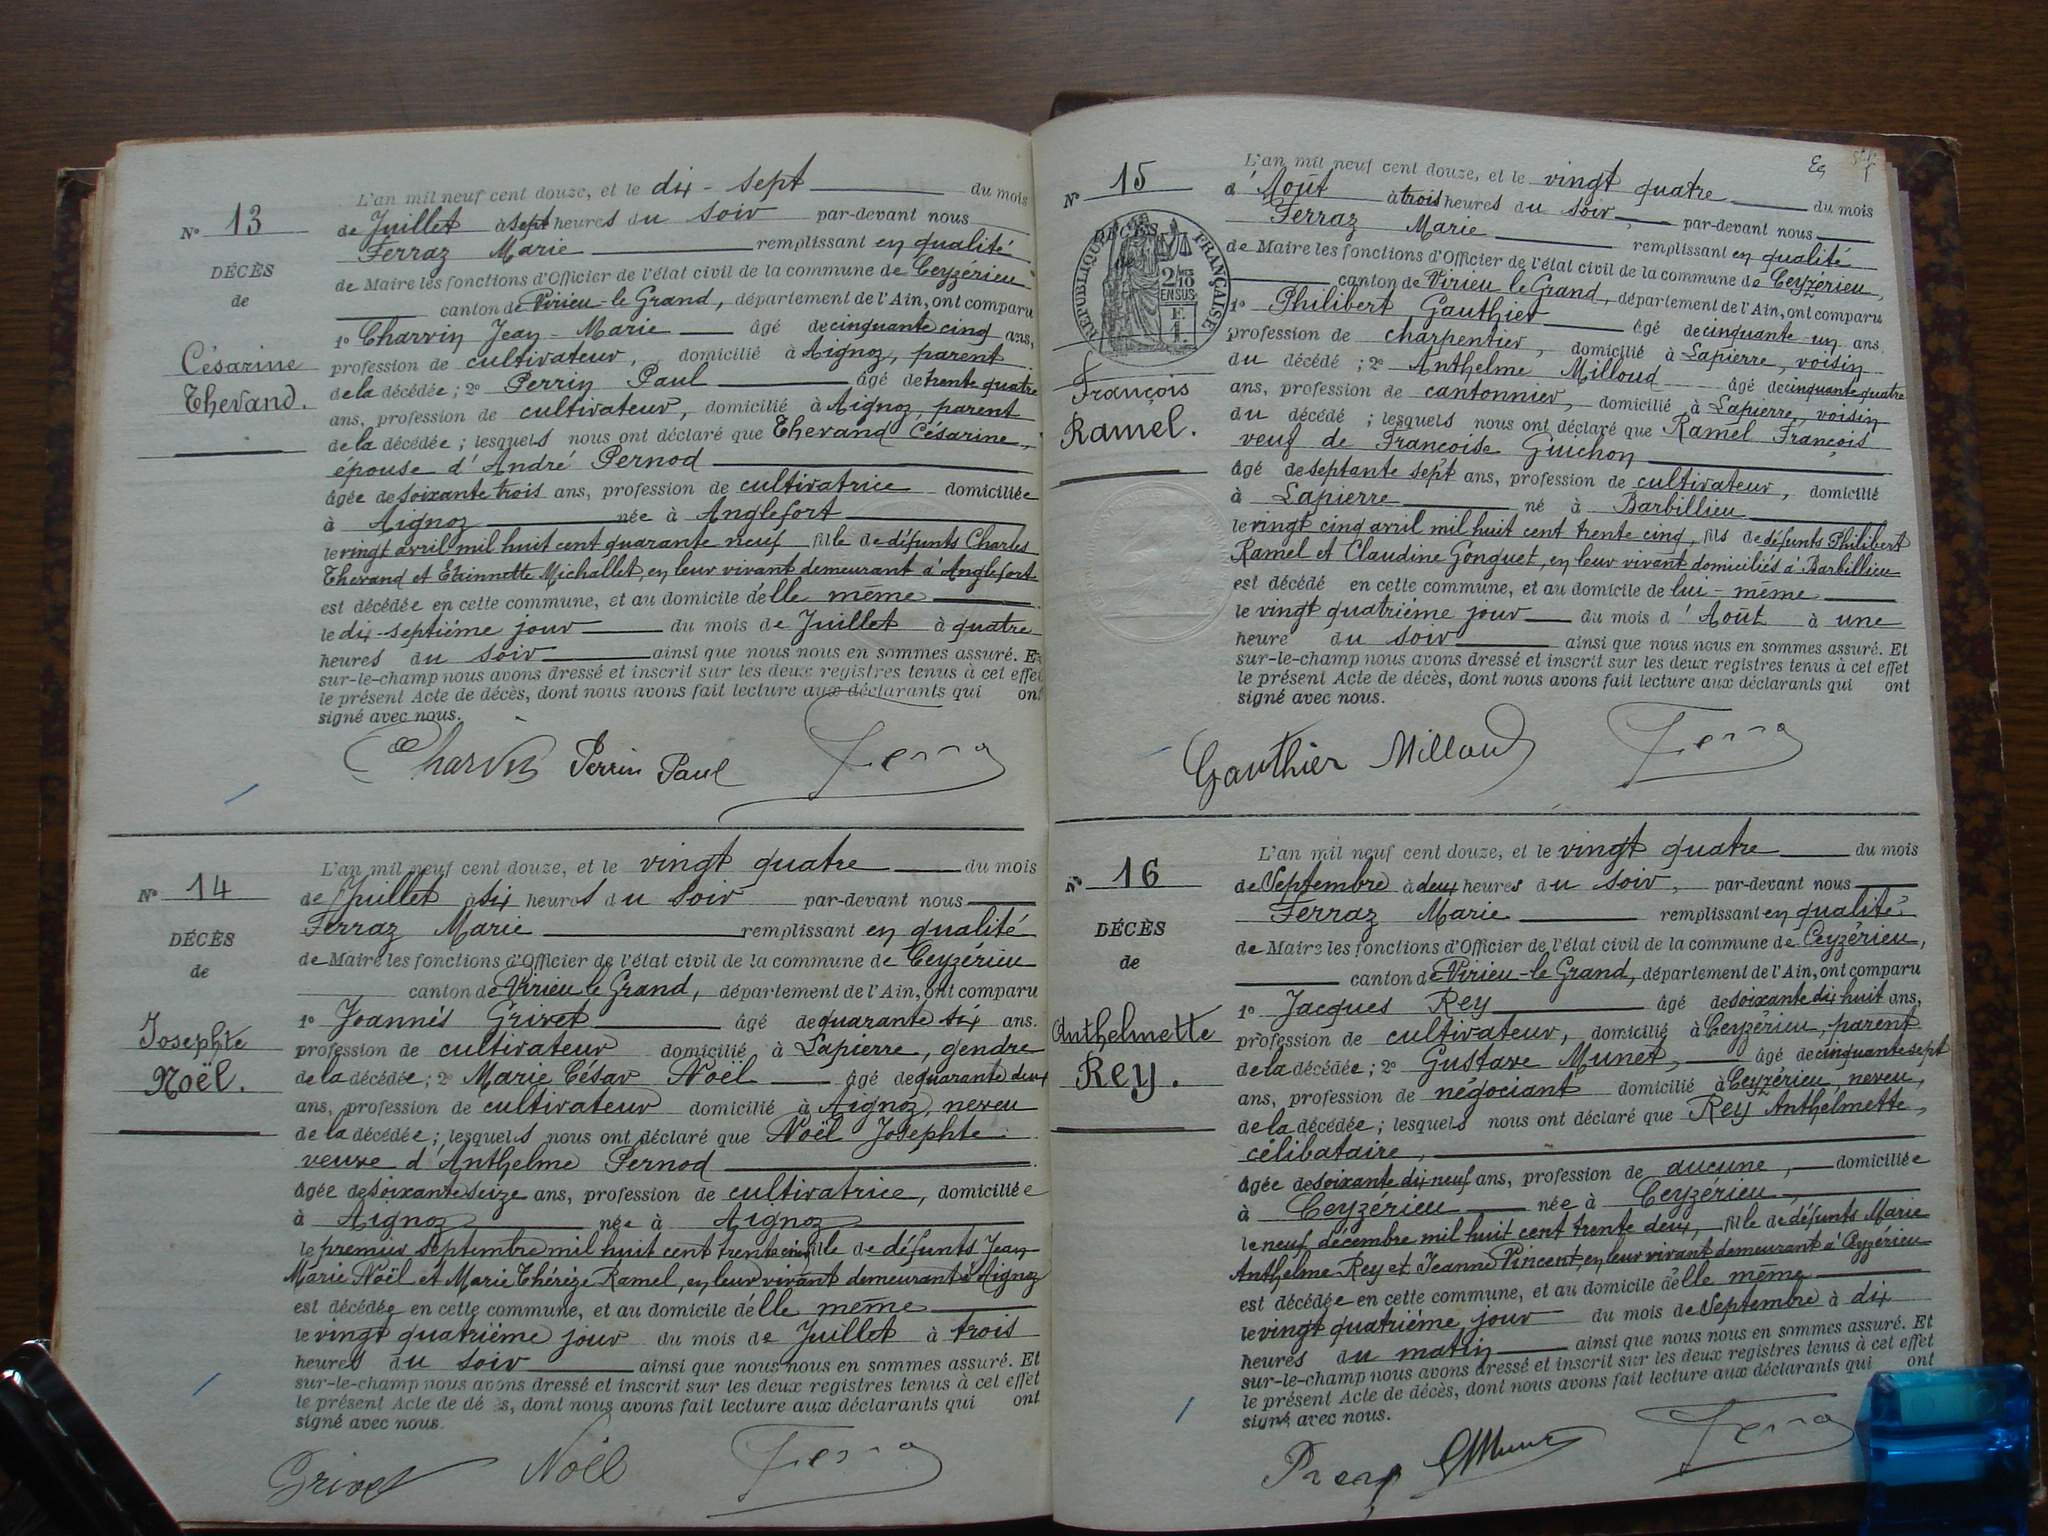 N° 13
DÉCÈS
de
Césarine
Thevand.
L'an mil neuf cent douze, et le dix-sept du mois
de Juillet à sept heures du soir par-devant nous
Ferraz Marie remplissant en qualité
de Maire les fonctions d'Officier de l'état civil de la commune de Ceyzérieu
canton de Virieu-le Grand, département de l'Ain, ont comparu
1° Charvin Jean-Marie âgé de cinquante cinq ans,
profession de cultivateur, domicilié à Aignoz, parent
de la décédée; 2° Perrin Paul âgé de trente quatre
ans, profession de cultivateur, domicilié à Aignoz, parent
de la décédée; lesquels nous ont déclaré que Thevand Césarine,
épouse d'André Pernod
âgée de soixante trois ans, profession de cultivatrice domiciliée
à Aignoz née à Anglefort
le vingt avril mil huit cent quarante neuf fille de défunts Charles
Thevand et Etiennette Michallet, en leur vivant demeurant à Anglefort
est décédée en cette commune, et au domicile d'elle même
le dix-septième jour du mois de Juillet à quatre
heures du soir ainsi que nous nous en sommes assuré. Et
sur-le-champ nous avons dressé et inscrit sur les deux registres tenus à cet effet
le présent Acte de décès, dont nous avons fait lecture aux déclarants qui ont
signé avec nous.
Charvin Perrin Paul Ferraz
N° 14
DÉCÈS
de
Josephte
Noël.
L'an mil neuf cent douze, et le vingt quatre du mois
de Juillet à six heures du soir par-devant nous
Ferraz Marie remplissant en qualité
de Maire les fonctions d'Officier de l'état civil de la commune de Ceyzérieu
canton de Virieu le Grand, département de l'Ain, ont comparu
1° Joannés Grivet âgé de quarante six ans.
profession de cultivateur domicilié à Lapierre, gendre
de la décédée; 2° Marie César Noël âgé de quarante deux
ans, profession de cultivateur domicilié à Aignoz, neveu
de la décédée; lesquels nous ont déclaré que Noël Josephte
veuve d'Anthelme Pernod
âgée de soixante seize ans, profession de cultivatrice, domiciliée
à Aignoz née à Aignoz
le premier septembre mil huit cent trente cinq fille de défunts Jean-
Marie Noël et Marie Thérèze Ramel, en leur vivant demeurant à Aignoz
est décédée en cette commune, et au domicile d'elle même
le vingt quatrième jour du mois de Juillet à trois
heures du soir ainsi que nous nous en sommes assuré. Et
sur-le-champ nous avons dressé et inscrit sur les deux registres tenus à cet effet
le présent Acte de décès, dont nous avons fait lecture aux déclarants qui ont
signé avec nous.
Grivet Noël Ferraz
N° 15
DÉCÈS
de
RÉPUBLIQUE FRANÇAISE
2/10
EN SUS
François
Ramel.
L'an mil neuf cent douze, et le vingt quatre du mois
d'Août à trois heures du soir par-devant nous
Ferraz Marie remplissant en qualité
de Maire les fonctions d'Officier de l'état civil de la commune de Ceyzérieu,
canton de Virieu le Grand, département de l'Ain, ont comparu
1° Philibert Gauthier âgé de cinquante-un ans.
profession de charpentier, domicilié à Lapierre, voisin
du décédé; 2° Anthelme Milloud âgé de cinquante quatre
ans, profession de cantonnier, domicilié à Lapierre, voisin
du décédé; lesquels nous ont déclaré que Ramel François
veuf de Françoise Guichon
âgé de septante sept ans, profession de cultivateur, domicilié
à Lapierre né à Barbillieu
le vingt cinq avril mil huit cent trente cinq, fils de défunts Philibert
Ramel et Claudine Gonguet, en leur vivant domiciliés à Barbillieu
est décédé en cette commune, et au domicile de lui-même
le vingt quatrième jour du mois d'Août à une
heure du soir ainsi que nous nous en sommes assuré. Et
sur-le-champ nous avons dressé et inscrit sur les deux registres tenus à cet effet
le présent Acte de décès, dont nous avons fait lecture aux déclarants qui ont
signé avec nous.
Gauthier Milloud Ferraz
N° 16
DÉCÈS
de
Anthelmette
Rey.
L'an mil neuf cent douze, et le vingt quatre du mois
de Septembre à deux heures du soir, par-devant nous
Ferraz Marie remplissant en qualité
de Maire les fonctions d'Officier de l'état civil de la commune de Ceyzérieu,
canton de Virieu-le Grand, département de l'Ain, ont comparu
1° Jacques Rey âgé de soixante dix huit ans,
profession de cultivateur, domicilié à Ceyzérieu, parent
de la décédée; 2° Gustave Munet, âgé de cinquante sept
ans, profession de négociant domicilié à Ceyzérieu, neveu,
de la décédée; lesquels nous ont déclaré que Rey Anthelmette,
célibataire,
âgée de soixante dix neuf ans, profession de aucune, domiciliée
à Ceyzérieu née à Ceyzérieu,
le neuf décembre mil huit cent trente deux, fille de défunts Marie
Anthelme Rey et Jeanne Vincent, en leur vivant demeurant à Ceyzérieu
est décédée en cette commune, et au domicile d'elle même
le vingt quatrième jour du mois de Septembre à dix
heures du matin ainsi que nous nous en sommes assuré. Et
sur-le-champ nous avons dressé et inscrit sur les deux registres tenus à cet effet
le présent Acte de décès, dont nous avons fait lecture aux déclarants qui ont
signé avec nous.
Ferraz